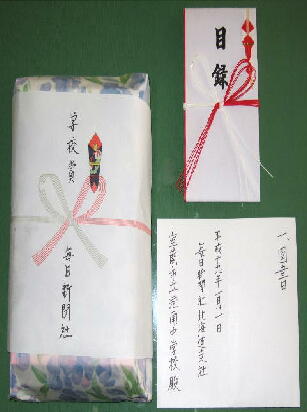 学校賞
毎日新聞社
目録
一、図書
平成十六年一月一日
毎日新聞社北海道支社
室蘭市立 学校 殿